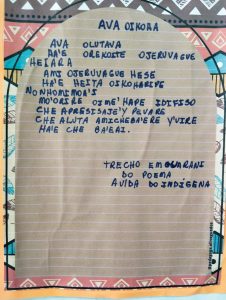 AVA OIKOHA
AVA OLUTAVA
HA'E OREKOITE OJERUVAGUE
HEIARA
AMI OJERUVAGUE HESE
HA'E HEITA OIKOHARIFE
NONHOMIMON'I
MO'ORIRE OIME'HAPE IDIFISO
CHE APRESISAJE'Y PEVARE
CHE ALUTA AMICHEBA'ERE Y'VIRE
HA'E CHE BA'EAI.
TRECHO EM GUARANI
DO POEMA
A VIDA DO INDÍGENA